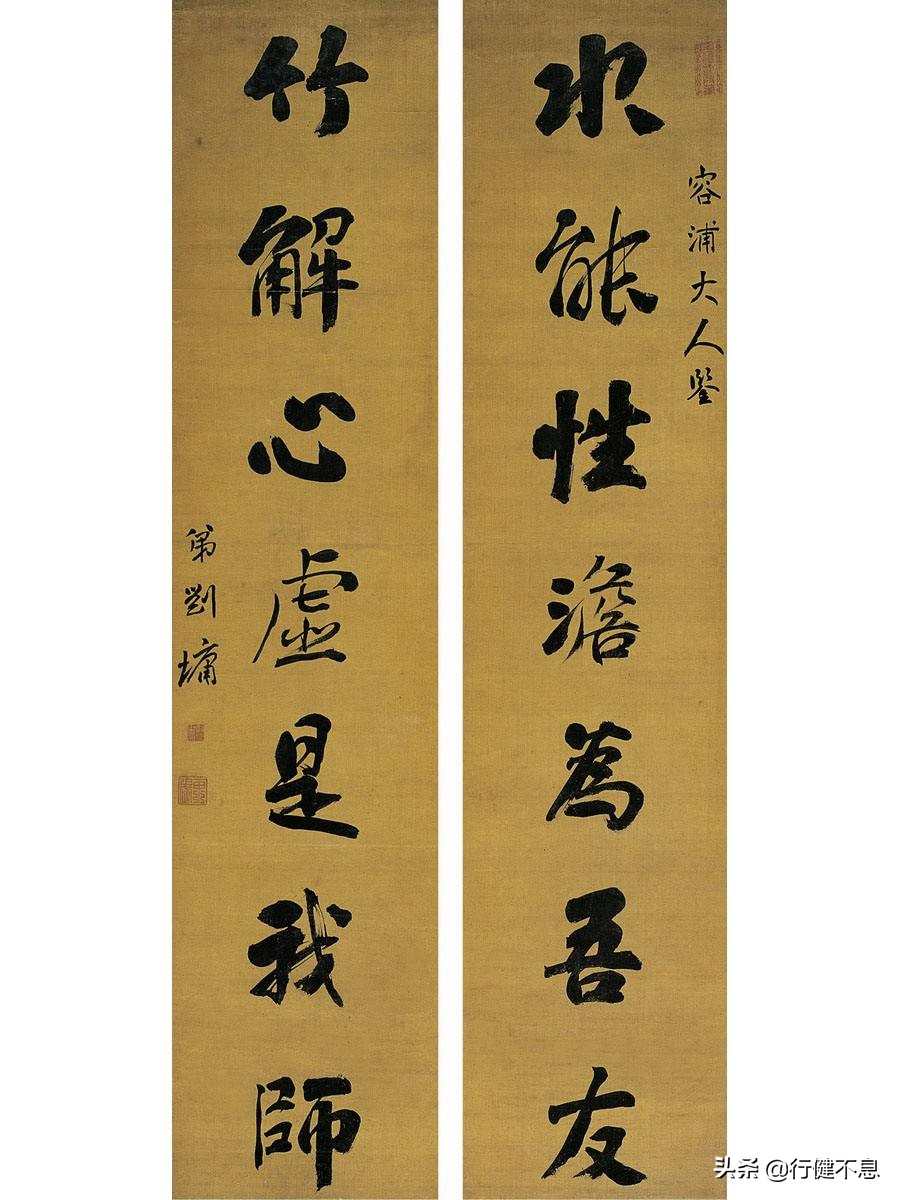 容浦大人鑒
水能性澹為吾友
竹解心虛是我師
弟劉墉
头条 @行健不息